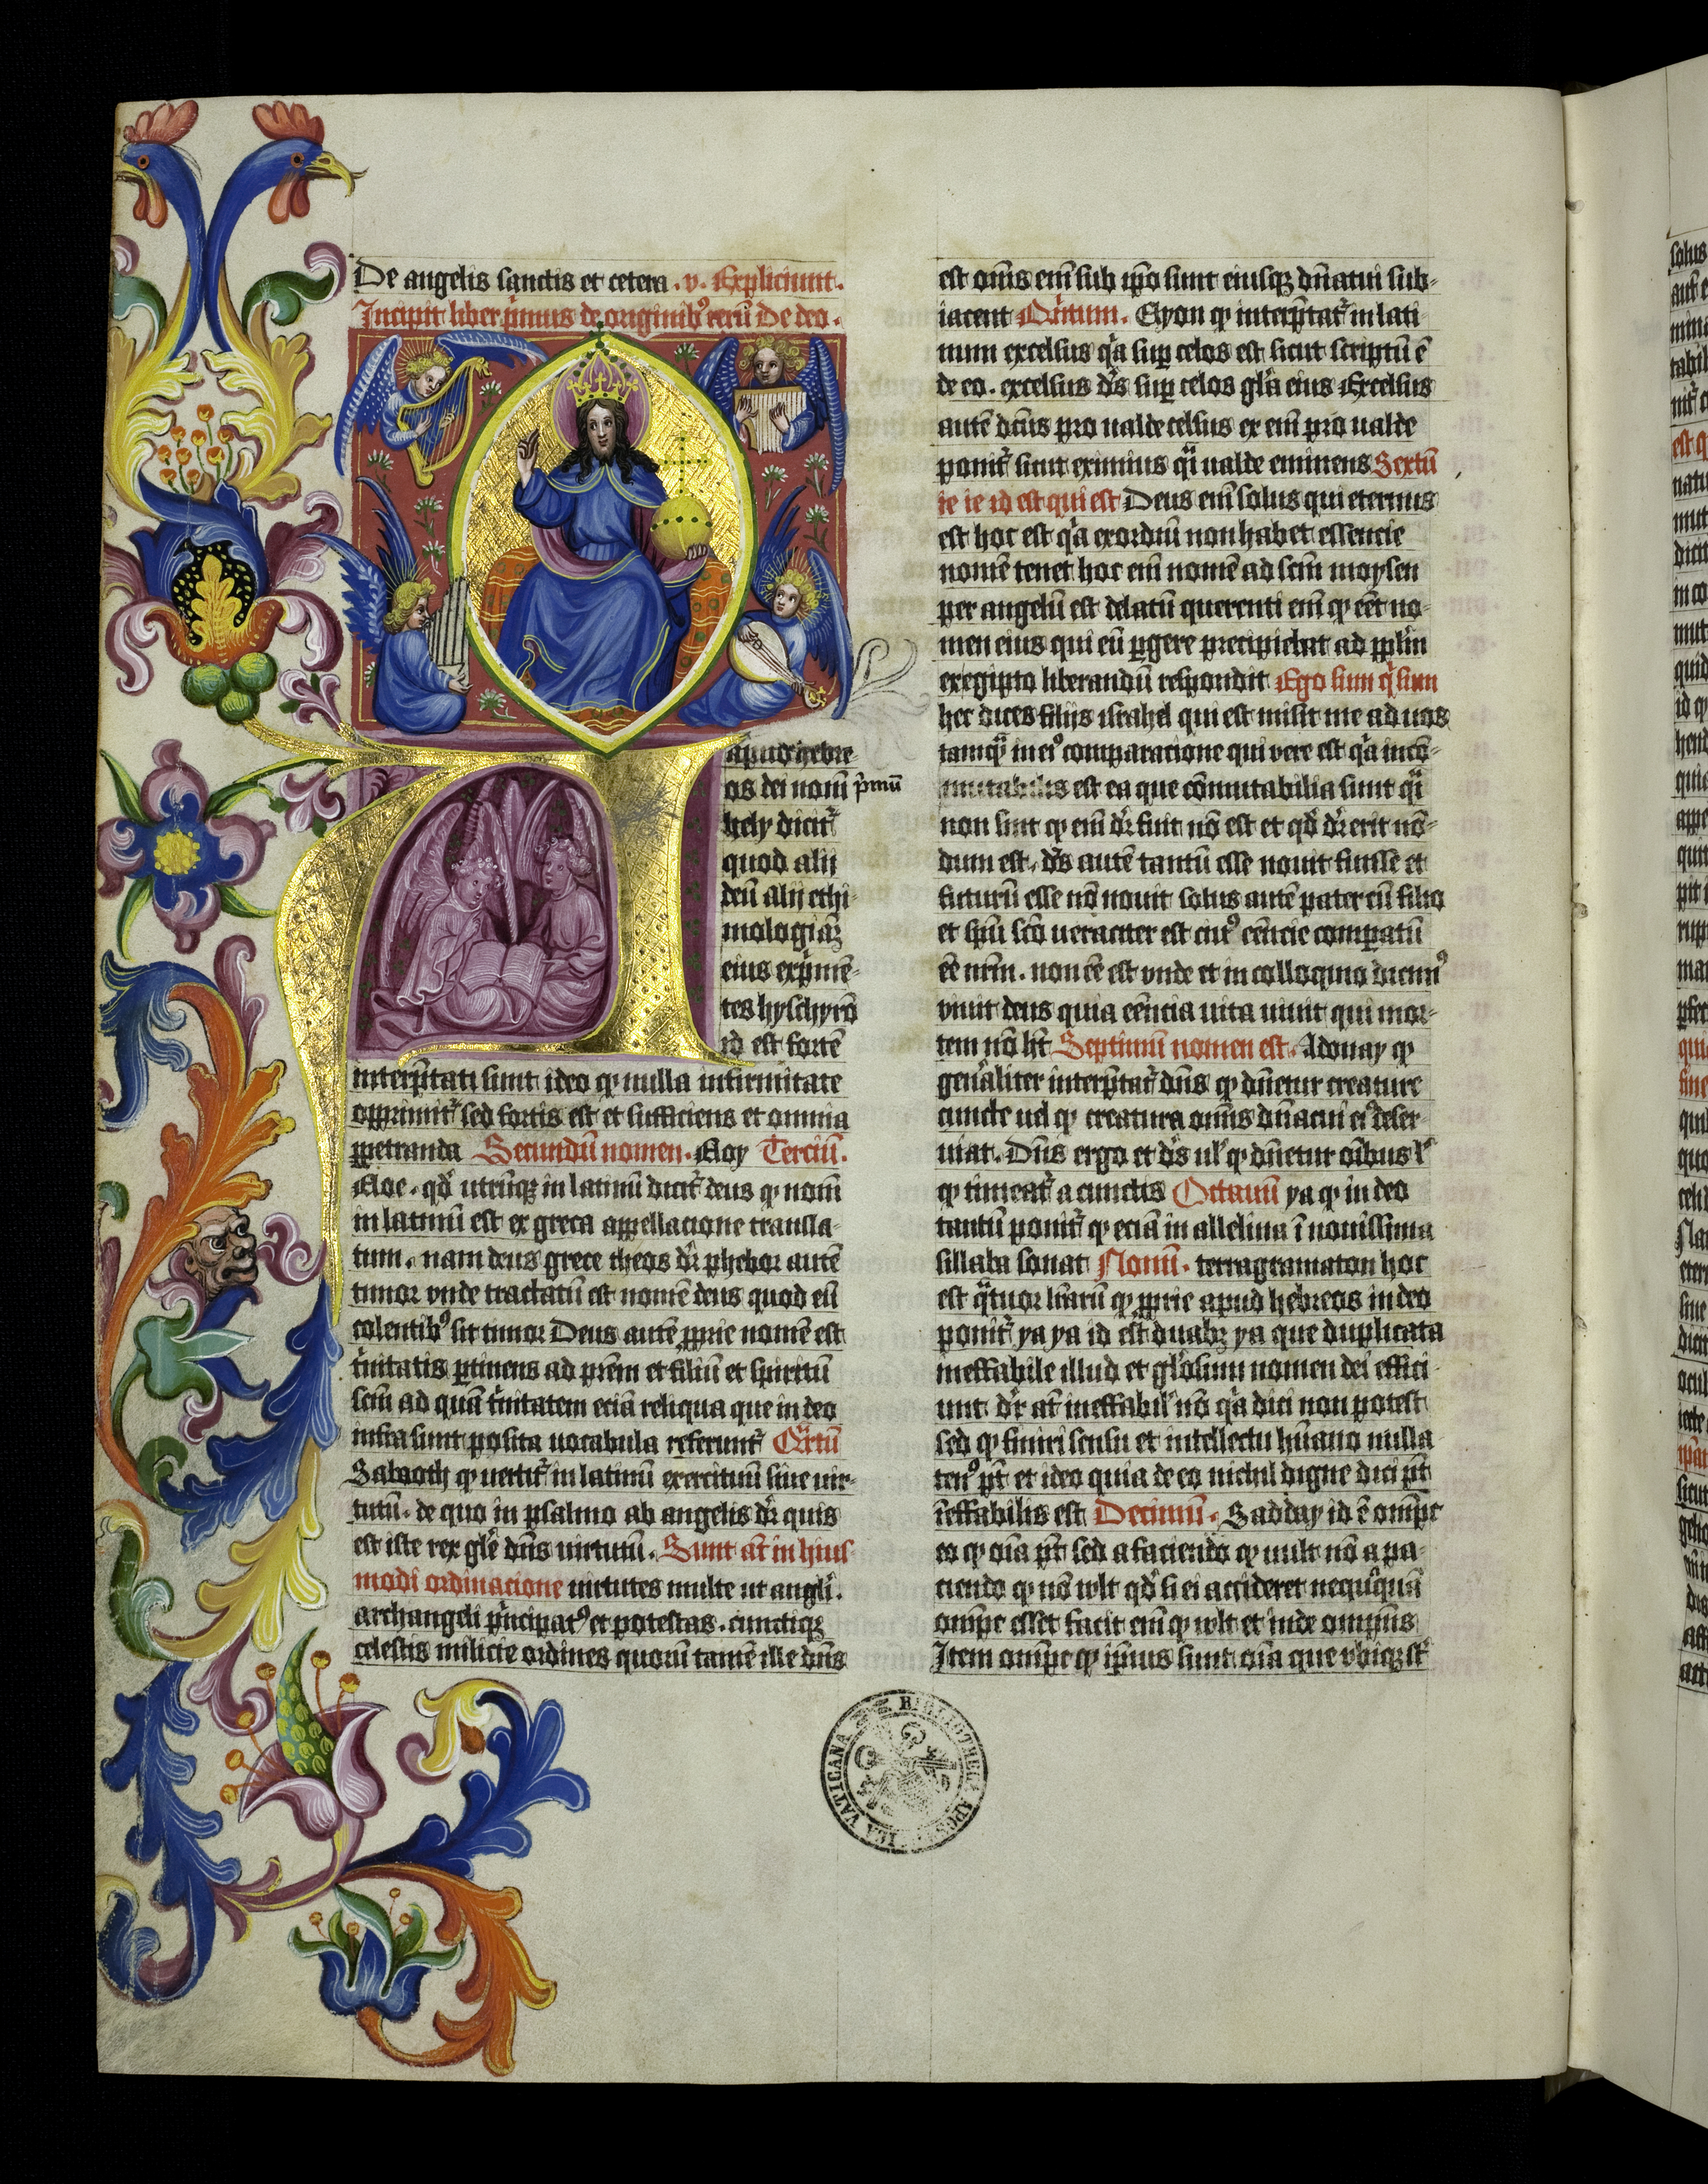 De angelis sanctis et cetera . v . Expliciunt .
Incipit liber p̃mus de originib9 reru̅ De deo .
apud hebre-
os dei nom̅ p̃mu̅
hely dicit̃
quod alij
deu̅ alij ethi-
mologiaȝ
eius exp̃me̅-
tes hyschyro̅
id est forte̅
interp̅tati sunt ideo qꝫ nulla infirmitate
opprimit̃ sed fortis est et sufficiens et omnia
ꝑpetranda Secundu̅ nomen . Eloy Terciu̅ .
Eloe . qd̅ utru̅qꝫ in latinu̅ dicit̃ deus qꝫ nom̅
in latinu̅ est ex greca appellacione transla-
tum . nam deus grece theos dr̃ phebor aute̅
timor vnde tractatu̅ est nome̅ deus quod eu̅
colentib9 sit timor Deus aute̅ ꝓprie nome̅ est
t̃nitatis ꝑtinens ad pr̅em et filiu̅ et spiritu̅
scm̅ ad qua̅ t̃nitatem ecia̅ reliqua que in deo
infra sunt posita uocabula referunt̃ Qr̃tu̅
Sabaoth qꝫ uertit̃ in latinu̅ exercituu̅ siue uir-
tutu̅ . de quo in psalmo ab angelis dr̃ quis
est iste rex gl̅e dn̅s uirtutu̅ . Sunt at̅ in huius
modi ordinacione uirtutes multe ut angl̅i .
archangeli p̃ncipat9 et potestas . cunctiqꝫ
celestis milicie ordines quoru̅ tame̅ ille dn̅s
est om̅s em̅ sub ip̅o sunt eiusqꝫ dn̅atui sub-
iacent Qi̅ntum . Elyon qꝫ interp̅tat̃ in lati
num excelsus qã suꝑ celos est sicut scriptu̅ e̅
de eo . excelsus ds̅ suꝑ celos gl̅a eius Excelsus
aute̅ dc̅us pro ualde celsus ex em̅ pro ualde
ponit̃ sicut eximius q̃i ualde eminens Sextu̅
ie ie id est qui est Deus em̅ solus qui eternus
est hoc est qã exordiu̅ non habet essencie
nome̅ tenet hoc em̅ nome̅ ad scm̅ moysen
per angelu̅ est delatu̅ querenti em̅ qꝫ e̅et no-
men eius qui eu̅ ꝑgere precipiebat ad ppl̅m
exegipto liberandu̅ respondit Ego sum q̃ sum
hec dices filijs israhel qui est misit me ad uos
tamq̃ in ei9 comparacione qui vere est qã inco̅-
mutabilis est ea que co̅mutabilia sunt q̃i
non sint qꝫ em̅ dr̃ fuit no̅ est et qd̅ dr̃ erit no̅-
dum est . ds̅ aute̅ tantu̅ esse nouit fuisse et
futuru̅ esse no̅ nouit solus aute̅ pater cu̅ filio
et spu̅ sco̅ ueraciter est cui9 ee̅ncie compatu̅
e̅e nr̅m . non e̅e est vnde et in colloquio dicim9
viuit deus quia ee̅ncia uita uiuit qui mor-
tem no̅ ht̅ Septimu̅ nomen est . Adonay qꝫ
gen̅aliter interp̅tat̃ dn̅s qꝫ dn̅etur creature
cuncte uel qꝫ creatura om̅s dn̅acui ei9 deser-
uiat . Dn̅s ergo et ds̅ ul̅ qꝫ dn̅etur oi̅bus l̅
qꝫ timeat̃ a cunctis Octauu̅ ya qꝫ in deo
tantu̅ ponit̃ qꝫ ecia̅ in allelina i̅ nouissima
sillaba sonat Nonu̅ . tetragramaton hoc
est q̃tuor lr̅aru̅ qꝫ ꝓprie apud hebreos in deo
ponit̃ ya ya id est duabꝫ ya que duplicata
ineffabile illud et gl̅osum nomen dei effici-
unt dr̃ at̅ ineffabil̅ no̅ qã dici non potest
sed qꝫ finiri sensu et intellectu hu̅ano nulla-
ten9 pt̅ et ideo quia de eo nichil digne dici pt̅
i̅effabilis est Decimu̅ . Sadday id e̅ omp̅s
eo qꝫ oi̅a pt̅ sed a faciendo qꝫ uult no̅ a pa-
ciendo qꝫ no̅ wlt qd̅ si ei accideret neqũqua̅
omp̅s esset facit em̅ qꝫ wlt et inde omp̅ns
Item omp̅s qꝫ ip̅ius sunt oi̅a que vbiqꝫ st̅
BIBLIOTHECA APOSTOLICA VATICANA